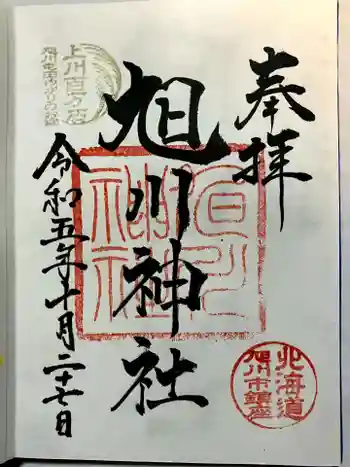 奉拝
旭川神社
旭川神社
北海道
旭川市鎮座
上川百万石
令和五年十月二十七日